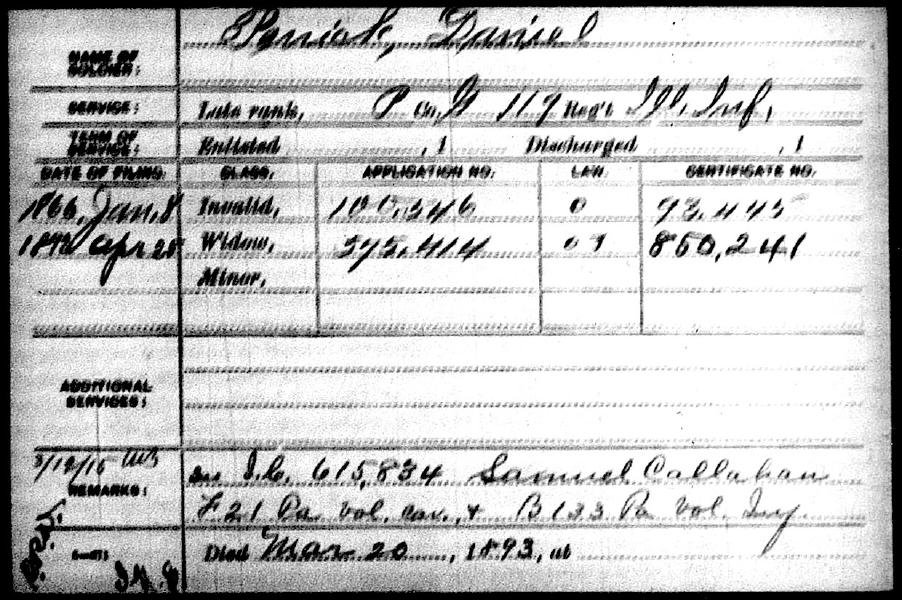 Daniel
NAME OF SOLDIER:
SERVICE: Late rank, P Co. G 119 Reg't Ill. Inf.
TERM OF SERVICE: Enlisted , 1 Discharged , 1
DATE OF FILING. CLASS. APPLICATION NO. LAW. CERTIFICATE NO.
1866, Jan. 8 Invalid, 93.445
Apr Widow, 850,241
Minor,
ADDITIONAL SERVICES:
REMARKS: I.C. 615,834 Samuel Callahan
F 21 Pa Vol. Cav. & B 133 Pa Vol. Inf.
Died Mar 20, 1893, at